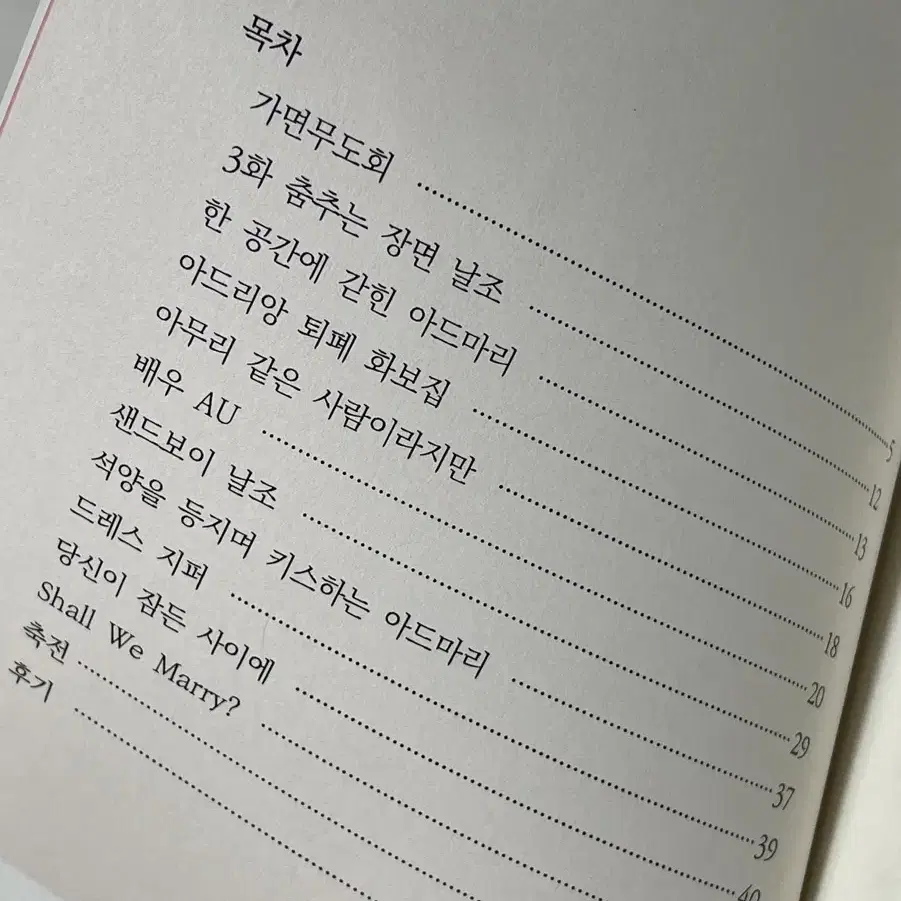 목차
가면무도회 ........ 5
3화 춤추는 장면 날조 ........ 12
한 공간에 갇힌 아드마리 ........ 13
아드리앙 퇴폐 화보집 ........ 16
아무리 같은 사람이라지만 ........ 18
배우 AU ........ 20
샌드보이 날조 ........ 29
석양을 등지며 키스하는 아드마리 ........ 37
드레스 지퍼 ........ 39
당신이 잠든 사이에 ........ 40
Shall We Marry? ........
축전 ........
후기 ........